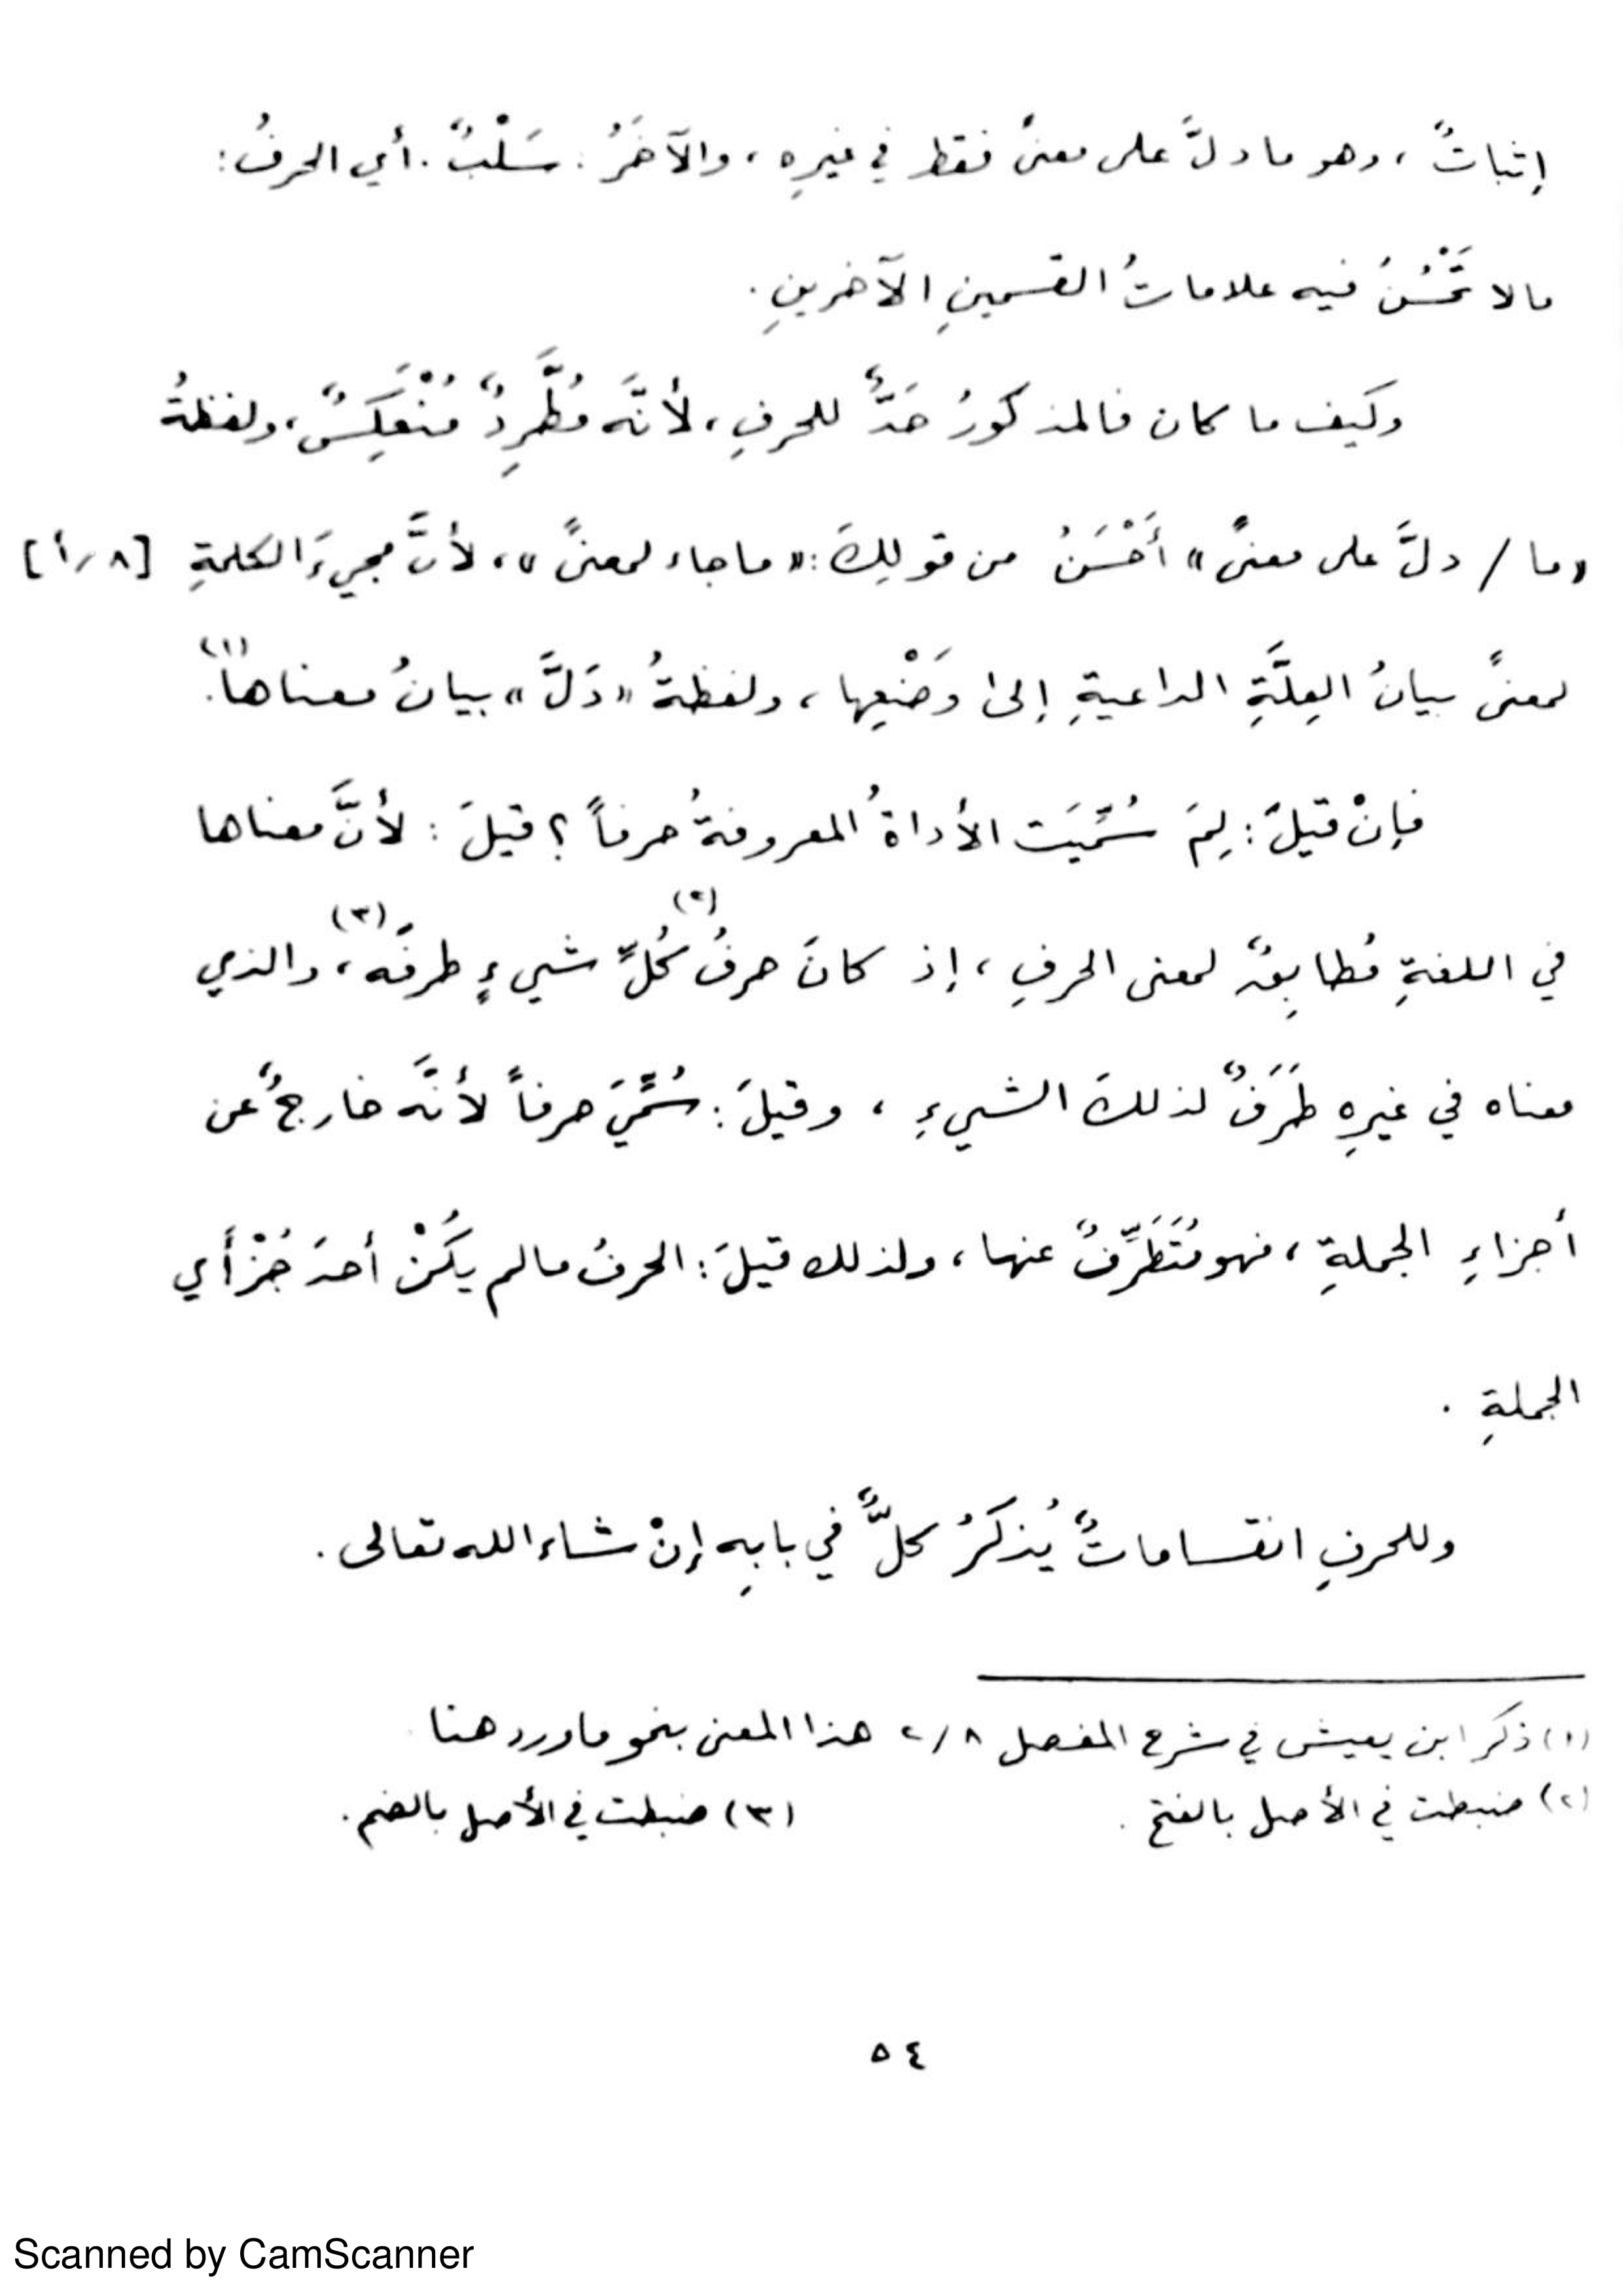 إثباتٌ ، وهو ما دلَّ على معنىً فقط في غيرِهِ ، والآخَرُ : سَلْبٌ . أي الحرفُ :
مالا تَحْسُنُ فيه علاماتُ القسمينِ الآخرينِ .
وكيف ما كان فالمذكورُ حَدٌّ للحرفِ ، لأنَّه مُطَّرِدٌ مُنْعَكِسٌ ، ولفظةُ
«ما / دلَّ على معنىً» أَحْسَنُ من قولِكَ : «ما جاء لمعنىً» ، لأنَّ مجيءَ الكلمةِ [٨/أ]
لمعنىً بيانُ العِلَّةِ الداعيةِ إلى وَضْعِها ، ولفظةُ «دَلَّ» بيانُ معناها(١) .
فإنْ قيلَ : لِمَ سُمِّيَت الأداةُ المعروفةُ حرفاً ؟ قيلَ : لأنَّ معناها
في اللغةِ مُطابِقٌ لمعنى الحرفِ ، إذ كانَ حرفُ(٢) كُلِّ شيءٍ طرفَه(٣) ، والذي
معناه في غيرِهِ طَرَفٌ لذلكَ الشيءِ ، وقيلَ : سُمِّيَ حرفاً لأنَّه خارجٌ عن
أجزاءِ الجملةِ ، فهو مُتَطَرِّفٌ عنها ، ولذلك قيلَ : الحرفُ مالم يكُنْ أحدَ جُزْأَي
الجملةِ .
وللحرفِ انقساماتٌ يُذكَرُ كلٌّ في بابِهِ إنْ شاء الله تعالى .
(١) ذكر ابن يعيش في شرح المفصل ٨/٢ هذا المعنى بنحو ما ورد هنا
(٢) ضبطت في الأصل بالفتح . (٣) ضبطت في الأصل بالضم .
٥٤
Scanned by CamScanner